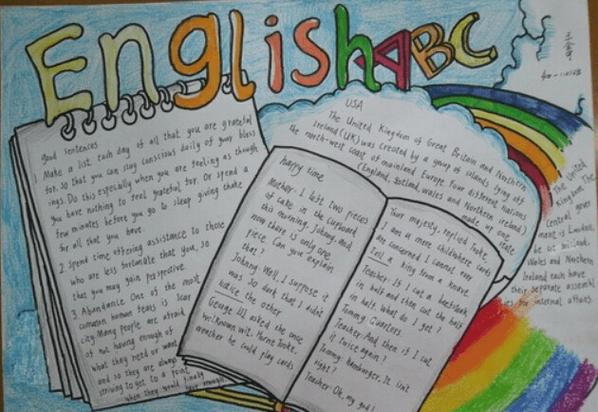 English ABC
Good sentences
1 Make a list each day of all that you are grateful
for, so that you can stay conscious daily of your bless
ings. Do this especially when you are feeling as though
you have nothing to feel grateful for. Or spend a
few minutes before you go to sleep giving thake
for all that you have.
2. Spend time offering assistance to those
who are less fortunate that you, so
that you may gain perspective.
3. Abundance One of the most
common human fears is scar
city. Many people are afraid
of not having enough of
what they need or want
and so they are always
striving to get to a point
when they would finally
have enough.
happy time
Mother: I left two pieces
of cake in the cupboard
this morning, Johnny, and
now there is only one
piece. Can you explain
that?
Johnny: Well, I suppose it
was so dark that I didn't
notice the other
George III asked the once
well-known wit, Horne Tooke,
weather he could play cards
Your majesty, replied Tooke,
I am a mere child where cards
are concerned I cannot ever
tell a king from a knave.
Teacher: If I cut a beefsteak
in half and then cut the half
in half. What do I get?
Tommy: Quarters.
Teacher: And then if I cut
it twice again?
Tommy: Hamburger. It isn't
right?
Teacher: Oh, my god!
USA
The United Kingdom of Great Britain and Northern
Ireland (UK) was created by a group of islands lying off
the north-west coast of mainland Europe. Four different nations
(England, Scotland, Wales and Northern Ireland)
made up one
state
The United
Kingdom The
Central gover
ment is London.
Wales and Northern
Ireland each have
their separate assembl
ies for internal affairs.